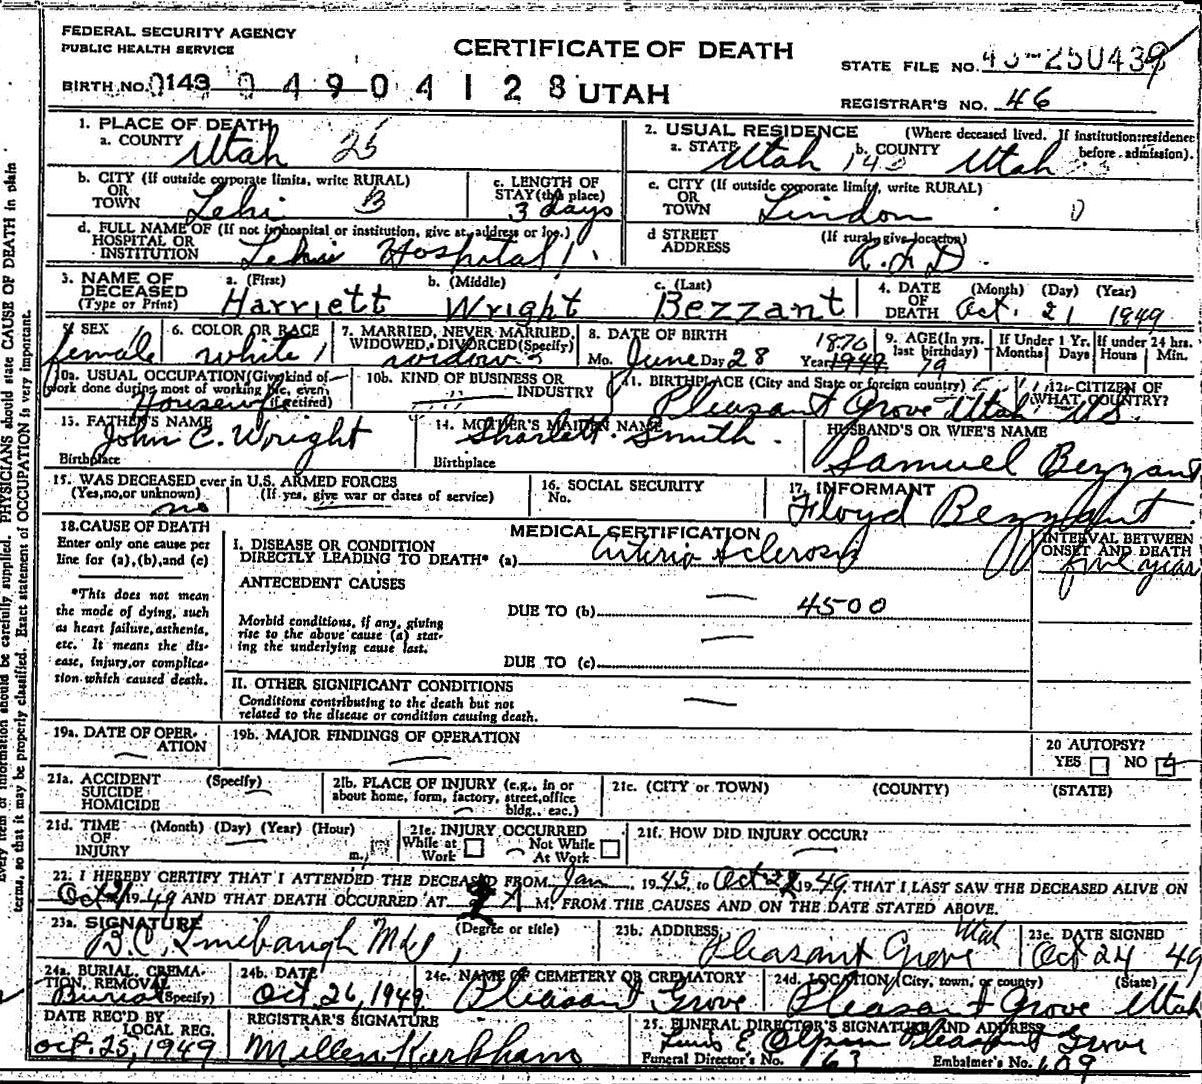 FEDERAL SECURITY AGENCY
PUBLIC HEALTH SERVICE
CERTIFICATE OF DEATH
STATE FILE NO.
BIRTH NO. 0143 0 4 9 0 4 1 2 8 UTAH
REGISTRAR'S NO. 46
1. PLACE OF DEATH
a. COUNTY Utah 25
2. USUAL RESIDENCE (Where deceased lived. If institution:residence before admission).
a. STATE Utah b. COUNTY Utah
b. CITY (If outside corporate limits, write RURAL)
OR
TOWN Lehi B
c. LENGTH OF
STAY (this place)
3 days
c. CITY (If outside corporate limits, write RURAL)
OR
TOWN Lindon
d. FULL NAME OF (If not in hospital or institution, give st. address or loc.)
HOSPITAL OR
INSTITUTION Lehi Hospital
d STREET (If rural, give location)
ADDRESS
3. NAME OF
DECEASED
(Type or Print)
a. (First) b. (Middle) c. (Last)
Harriett Wright Bezzant
4. DATE (Month) (Day) (Year)
OF
DEATH Oct. 21 1949
5 SEX
female
6. COLOR OR RACE
white
7. MARRIED, NEVER MARRIED,
WIDOWED, DIVORCED (Specify)
widow
8. DATE OF BIRTH
Mo. June Day 28 Year 1949 1870
9. AGE (In yrs.
last birthday)
79
If Under 1 Yr.
Months Days
If under 24 hrs.
Hours Min.
10a. USUAL OCCUPATION (Give kind of
work done during most of working life, even
if retired)
Housewife
10b. KIND OF BUSINESS OR
INDUSTRY
11. BIRTHPLACE (City and State or foreign country)
Pleasant Grove Utah
12. CITIZEN OF
WHAT COUNTRY?
U.S.
13. FATHER'S NAME
John C. Wright
Birthplace
14. MOTHER'S MAIDEN NAME
Sharlett Smith
Birthplace
HUSBAND'S OR WIFE'S NAME
Samuel Bezzant
15. WAS DECEASED ever in U.S. ARMED FORCES
(Yes, no, or unknown) (If yes, give war or dates of service)
no
16. SOCIAL SECURITY
No.
17. INFORMANT
Floyd Bezzant
18. CAUSE OF DEATH
Enter only one cause per
line for (a), (b), and (c)
*This does not mean
the mode of dying, such
as heart failure, asthenia,
etc. It means the dis-
ease, injury, or complica-
tion which caused death.
MEDICAL CERTIFICATION
I. DISEASE OR CONDITION
DIRECTLY LEADING TO DEATH* (a) Arterio Sclerosis
INTERVAL BETWEEN
ONSET AND DEATH
five year
ANTECEDENT CAUSES
DUE TO (b) 4500
Morbid conditions, if any, giving
rise to the above cause (a) stat-
ing the underlying cause last.
DUE TO (c)
II. OTHER SIGNIFICANT CONDITIONS
Conditions contributing to the death but not
related to the disease or condition causing death.
19a. DATE OF OPER-
ATION
19b. MAJOR FINDINGS OF OPERATION
20 AUTOPSY?
YES NO
21a. ACCIDENT (Specify)
SUICIDE
HOMICIDE
21b. PLACE OF INJURY (e.g., in or
about home, form, factory, street, office
bldg., eac.)
21c. (CITY or TOWN) (COUNTY) (STATE)
21d. TIME (Month) (Day) (Year) (Hour)
OF
INJURY m.
21e. INJURY OCCURRED
While at Not While
Work At Work
21f. HOW DID INJURY OCCUR?
22. I HEREBY CERTIFY THAT I ATTENDED THE DECEASED FROM Jan, 1945, to Oct 1949, THAT I LAST SAW THE DECEASED ALIVE ON
Oct 21 1949 AND THAT DEATH OCCURRED AT M. FROM THE CAUSES AND ON THE DATE STATED ABOVE.
23a. SIGNATURE (Degree or title)
23b. ADDRESS
Pleasant Grove Utah
23c. DATE SIGNED
Oct 24 49
24a. BURIAL, CREMA-
TION, REMOVAL
(Specify)
Burial
24b. DATE
Oct. 26, 1949
24c. NAME OF CEMETERY OR CREMATORY
Pleasant Grove
24d. LOCATION (City, town, or county) (State)
Pleasant Grove Utah
DATE REC'D BY
LOCAL REG.
Oct. 25, 1949
REGISTRAR'S SIGNATURE
25. FUNERAL DIRECTOR'S SIGNATURE AND ADDRESS
Pleasant Grove
Funeral Director's No. 163 Embalmer's No. 109
Every item of information should be carefully supplied. PHYSICIANS should state CAUSE OF DEATH in plain
terms, so that it may be properly classified. Exact statement of OCCUPATION is very important.